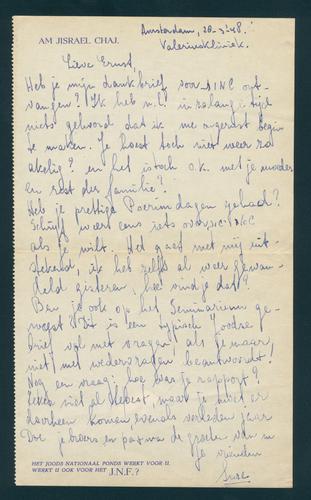 AM JISRAEL CHAJ.
Amsterdam, 28-3-'48.
Valeriuskliniek.
Lieve Ernst,
Heb je mijn dankbrief voor D.I.N.C. ont-
vangen? Ik heb n.l. in zolange tijd
niets gehoord dat ik me ongerust begin
te maken. Je hoest toch niet weer zo
akelig? en het is toch o.k. met je moeder
en rest der familie?
Heb je prettige Poerimdagen gehad?
Schrijf weer eens iets over
als je wilt. Het gaat met mij uit-
stekend, ik heb zelfs al weer gewan-
deld gisteren, hoe vind je dat?
Ben je ook op het Seminarium ge-
weest? Dit is een typisch Joodse
brief vol met vragen, als je maar
niet met wedervragen beantwoordt.
Nog een vraag: hoe was je rapport?
niet al te best, maar je komt er
doorheen komen evenals verleden jaar
Doe je broers en pa en ma de groeten van m
je vriendin
HET JOODS NATIONAAL FONDS WERKT VOOR U.
WERKT U OOK VOOR HET J.N.F.?